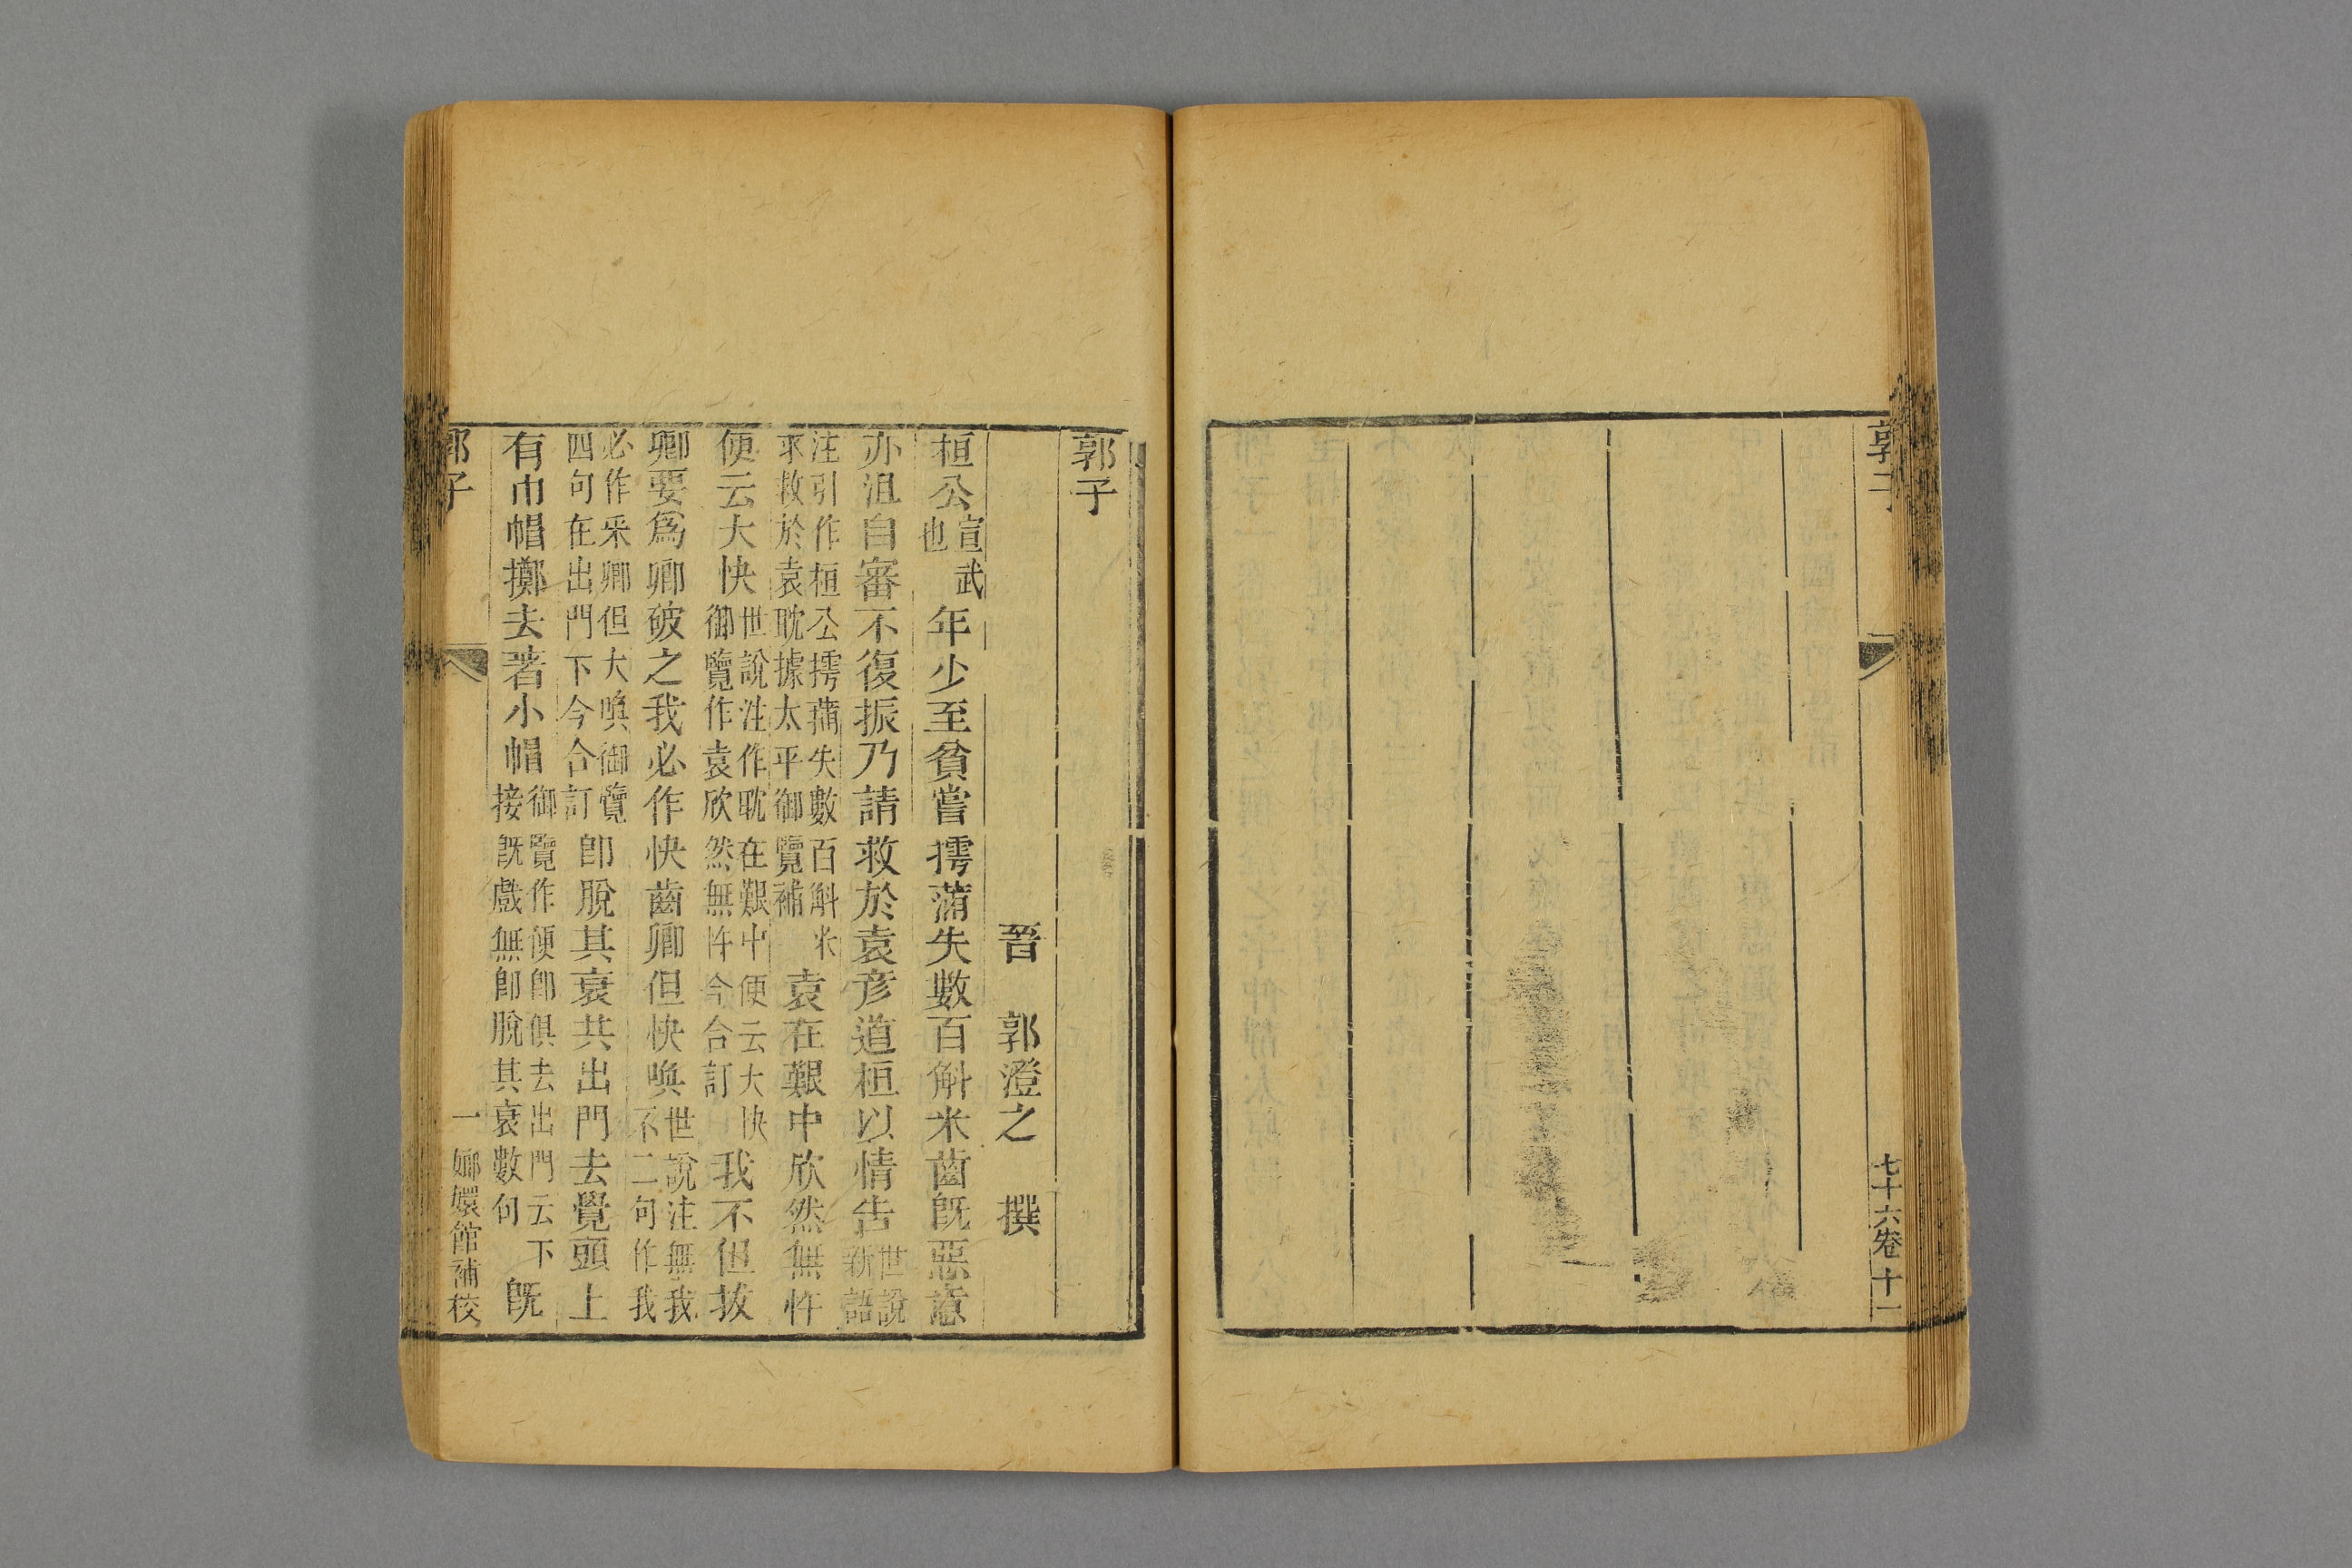 郭子
七十六卷 十一
郭子
晉 郭澄之 撰
桓公宣武也年少至貧嘗摴蒱失數百斛米齒旣惡意
亦沮自審不復振乃請救於袁彥道桓以情告世說新語
注引作桓公摴蒱失數百斛米求救於袁耽據太平御覽補袁在艱中欣然無忤
便云大快世說注作耽在艱中便云大快御覽作袁欣然無忤今合訂我不但拔
卿要爲卿破之我必作快齒卿但快喚世說注無我不二句作我
必作采卿但大喚御覽四句在出門下今合訂卽脫其衰共出門去覺頭上
有巾帽擲去著小帽御覽作便卽俱去出門云下接旣戲無卽脫其衰數句旣
郭子
一 嫏嬛館補校